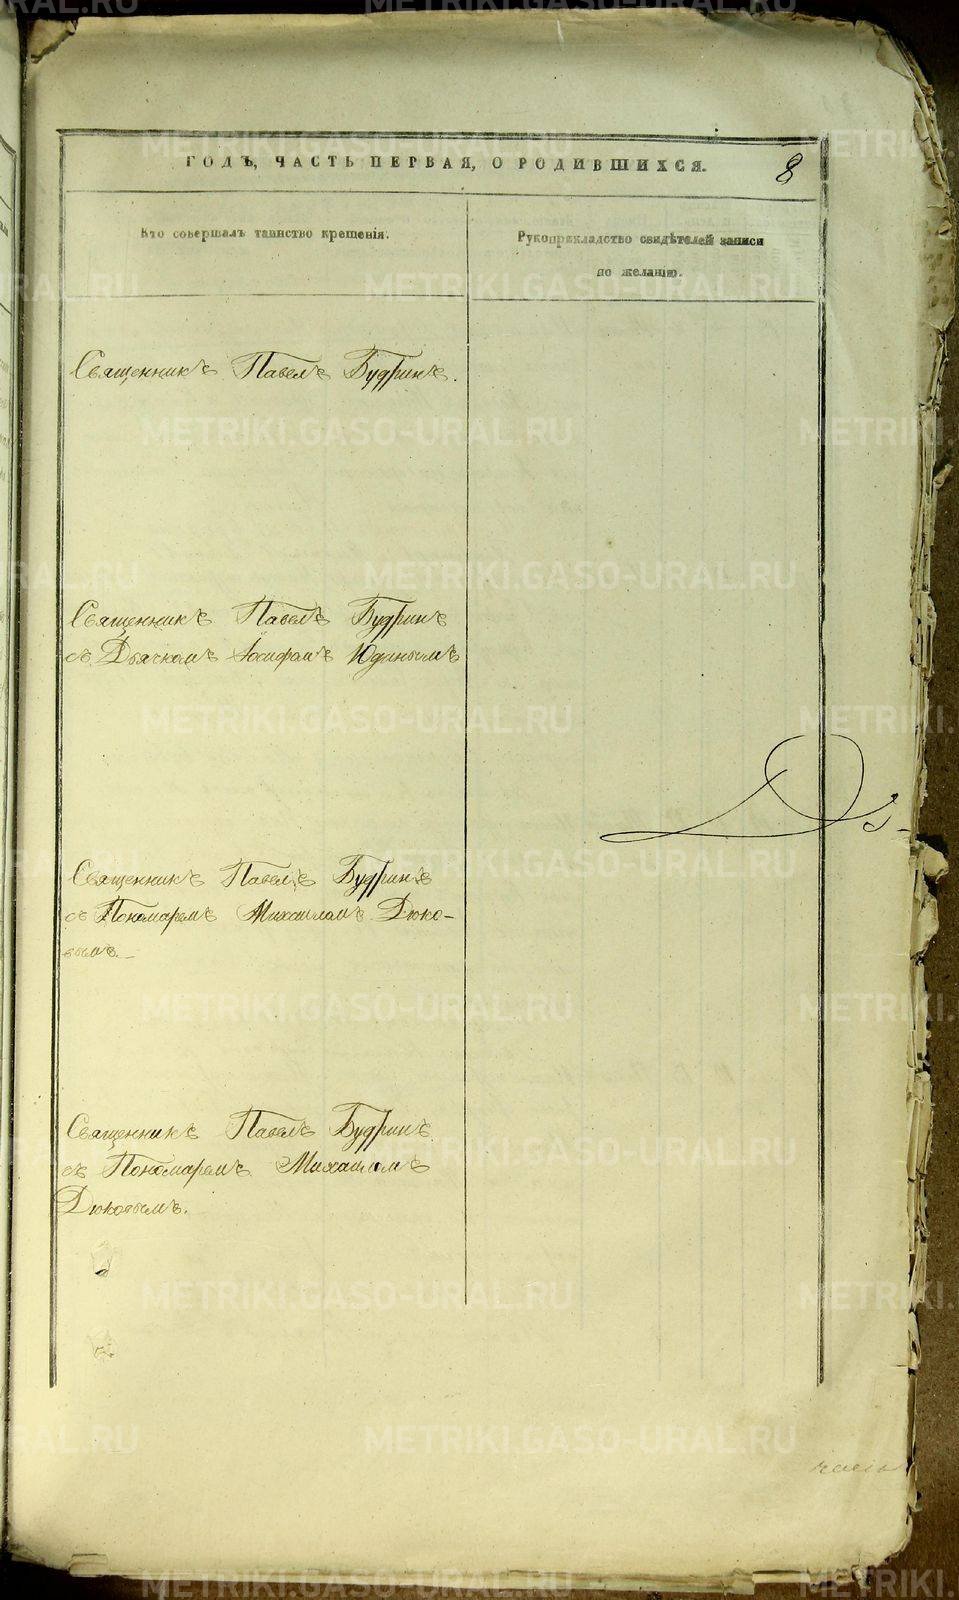 ГОДЪ, ЧАСТЬ ПЕРВАЯ, О РОДИВШИХСЯ.
8
Кто совершалъ таинство крещенія.
Рукоприкладство свидѣтелей записи
по желанію.
Священникъ Павелъ Будринъ.
Священникъ Павелъ Будринъ
съ Дьячкомъ Іосифомъ Юдинымъ
Священникъ Павелъ Будринъ
съ Пономаремъ Михаиломъ Дюко-
вымъ.
Священникъ Павелъ Будринъ
съ Пономаремъ Михаиломъ
Дюковымъ.
METRIKI.GASO-URAL.RU